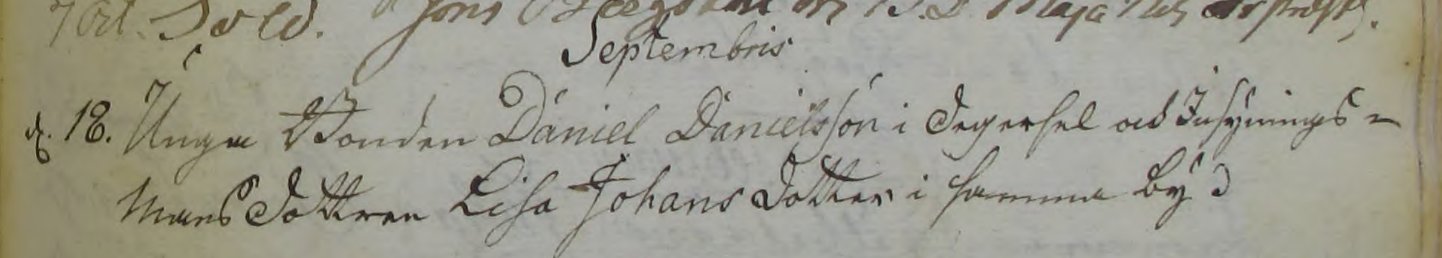 Septembris
d. 18. Unga Bonden Daniel Danielsson i Degersel och Insynings-
Mans Dottren Lisa Johans Dotter i samma by